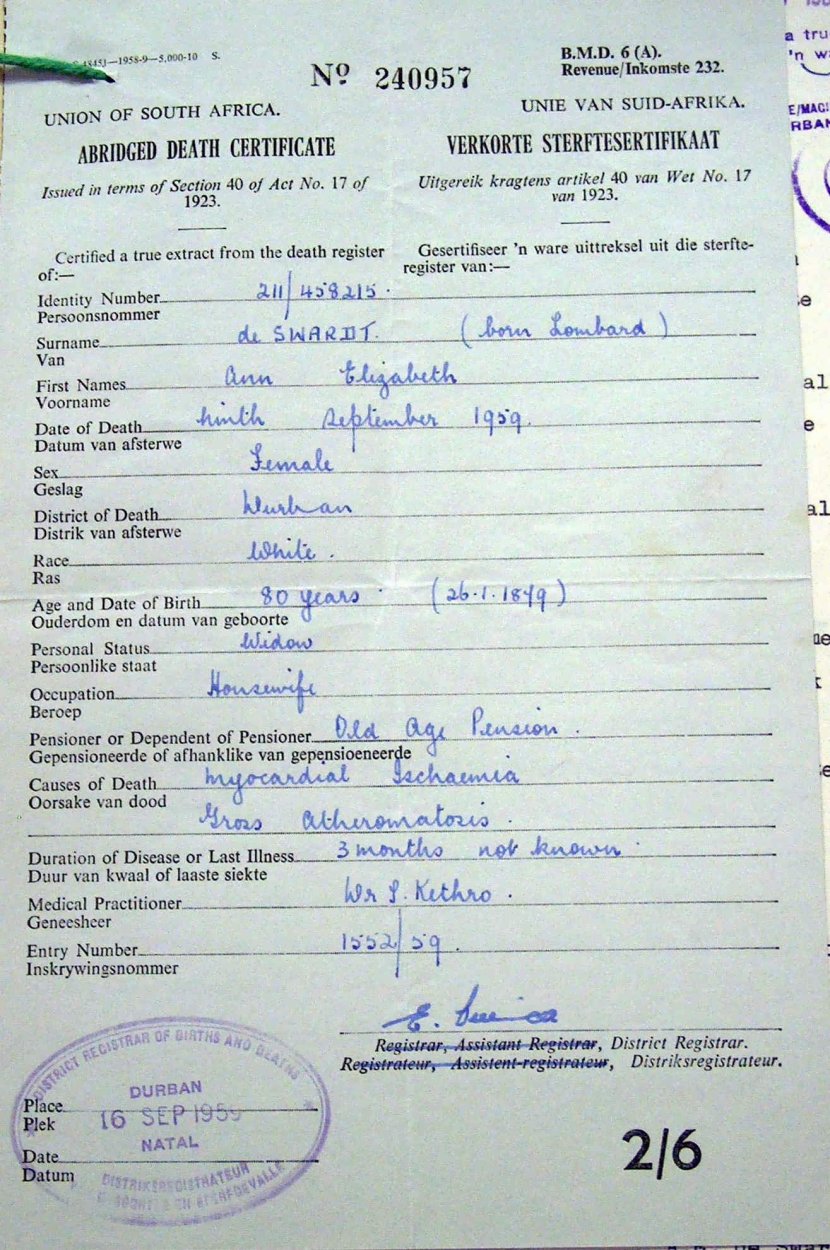 1958-9—5,000-10 S.
Nº 240957
B.M.D. 6 (A).
Revenue/Inkomste 232.
UNION OF SOUTH AFRICA.
UNIE VAN SUID-AFRIKA.
ABRIDGED DEATH CERTIFICATE
VERKORTE STERFTESERTIFIKAAT
Issued in terms of Section 40 of Act No. 17 of
1923.
Uitgereik kragtens artikel 40 van Wet No. 17
van 1923.
Certified a true extract from the death register
of:—
Gesertifiseer 'n ware uittreksel uit die sterfte-
register van:—
Identity Number 211/458215.
Persoonsnommer
Surname de SWARDT. (born Lombard)
Van
First Names Ann Elizabeth
Voorname
Date of Death ninth September 1959.
Datum van afsterwe
Sex Female
Geslag
District of Death Durban
Distrik van afsterwe
Race White.
Ras
Age and Date of Birth 80 years. (26.1.1879)
Ouderdom en datum van geboorte
Personal Status Widow
Persoonlike staat
Occupation Housewife
Beroep
Pensioner or Dependent of Pensioner Old Age Pension.
Gepensioneerde of afhanklike van gepensioeneerde
Causes of Death Myocardial Ischaemia
Oorsake van dood
Gross Atheromatosis.
Duration of Disease or Last Illness 3 months not known.
Duur van kwaal of laaste siekte
Medical Practitioner Dr S. Kethro.
Geneesheer
Entry Number 1552/59.
Inskrywingsnommer
E.
Registrar, Assistant Registrar, District Registrar.
Registrateur, Assistent-registrateur, Distriksregistrateur.
DISTRICT REGISTRAR OF BIRTHS AND DEATHS
DURBAN
Place
16 SEP 1959
Plek
NATAL
Date
Datum
DISTRIKSREGISTRATEUR
2/6